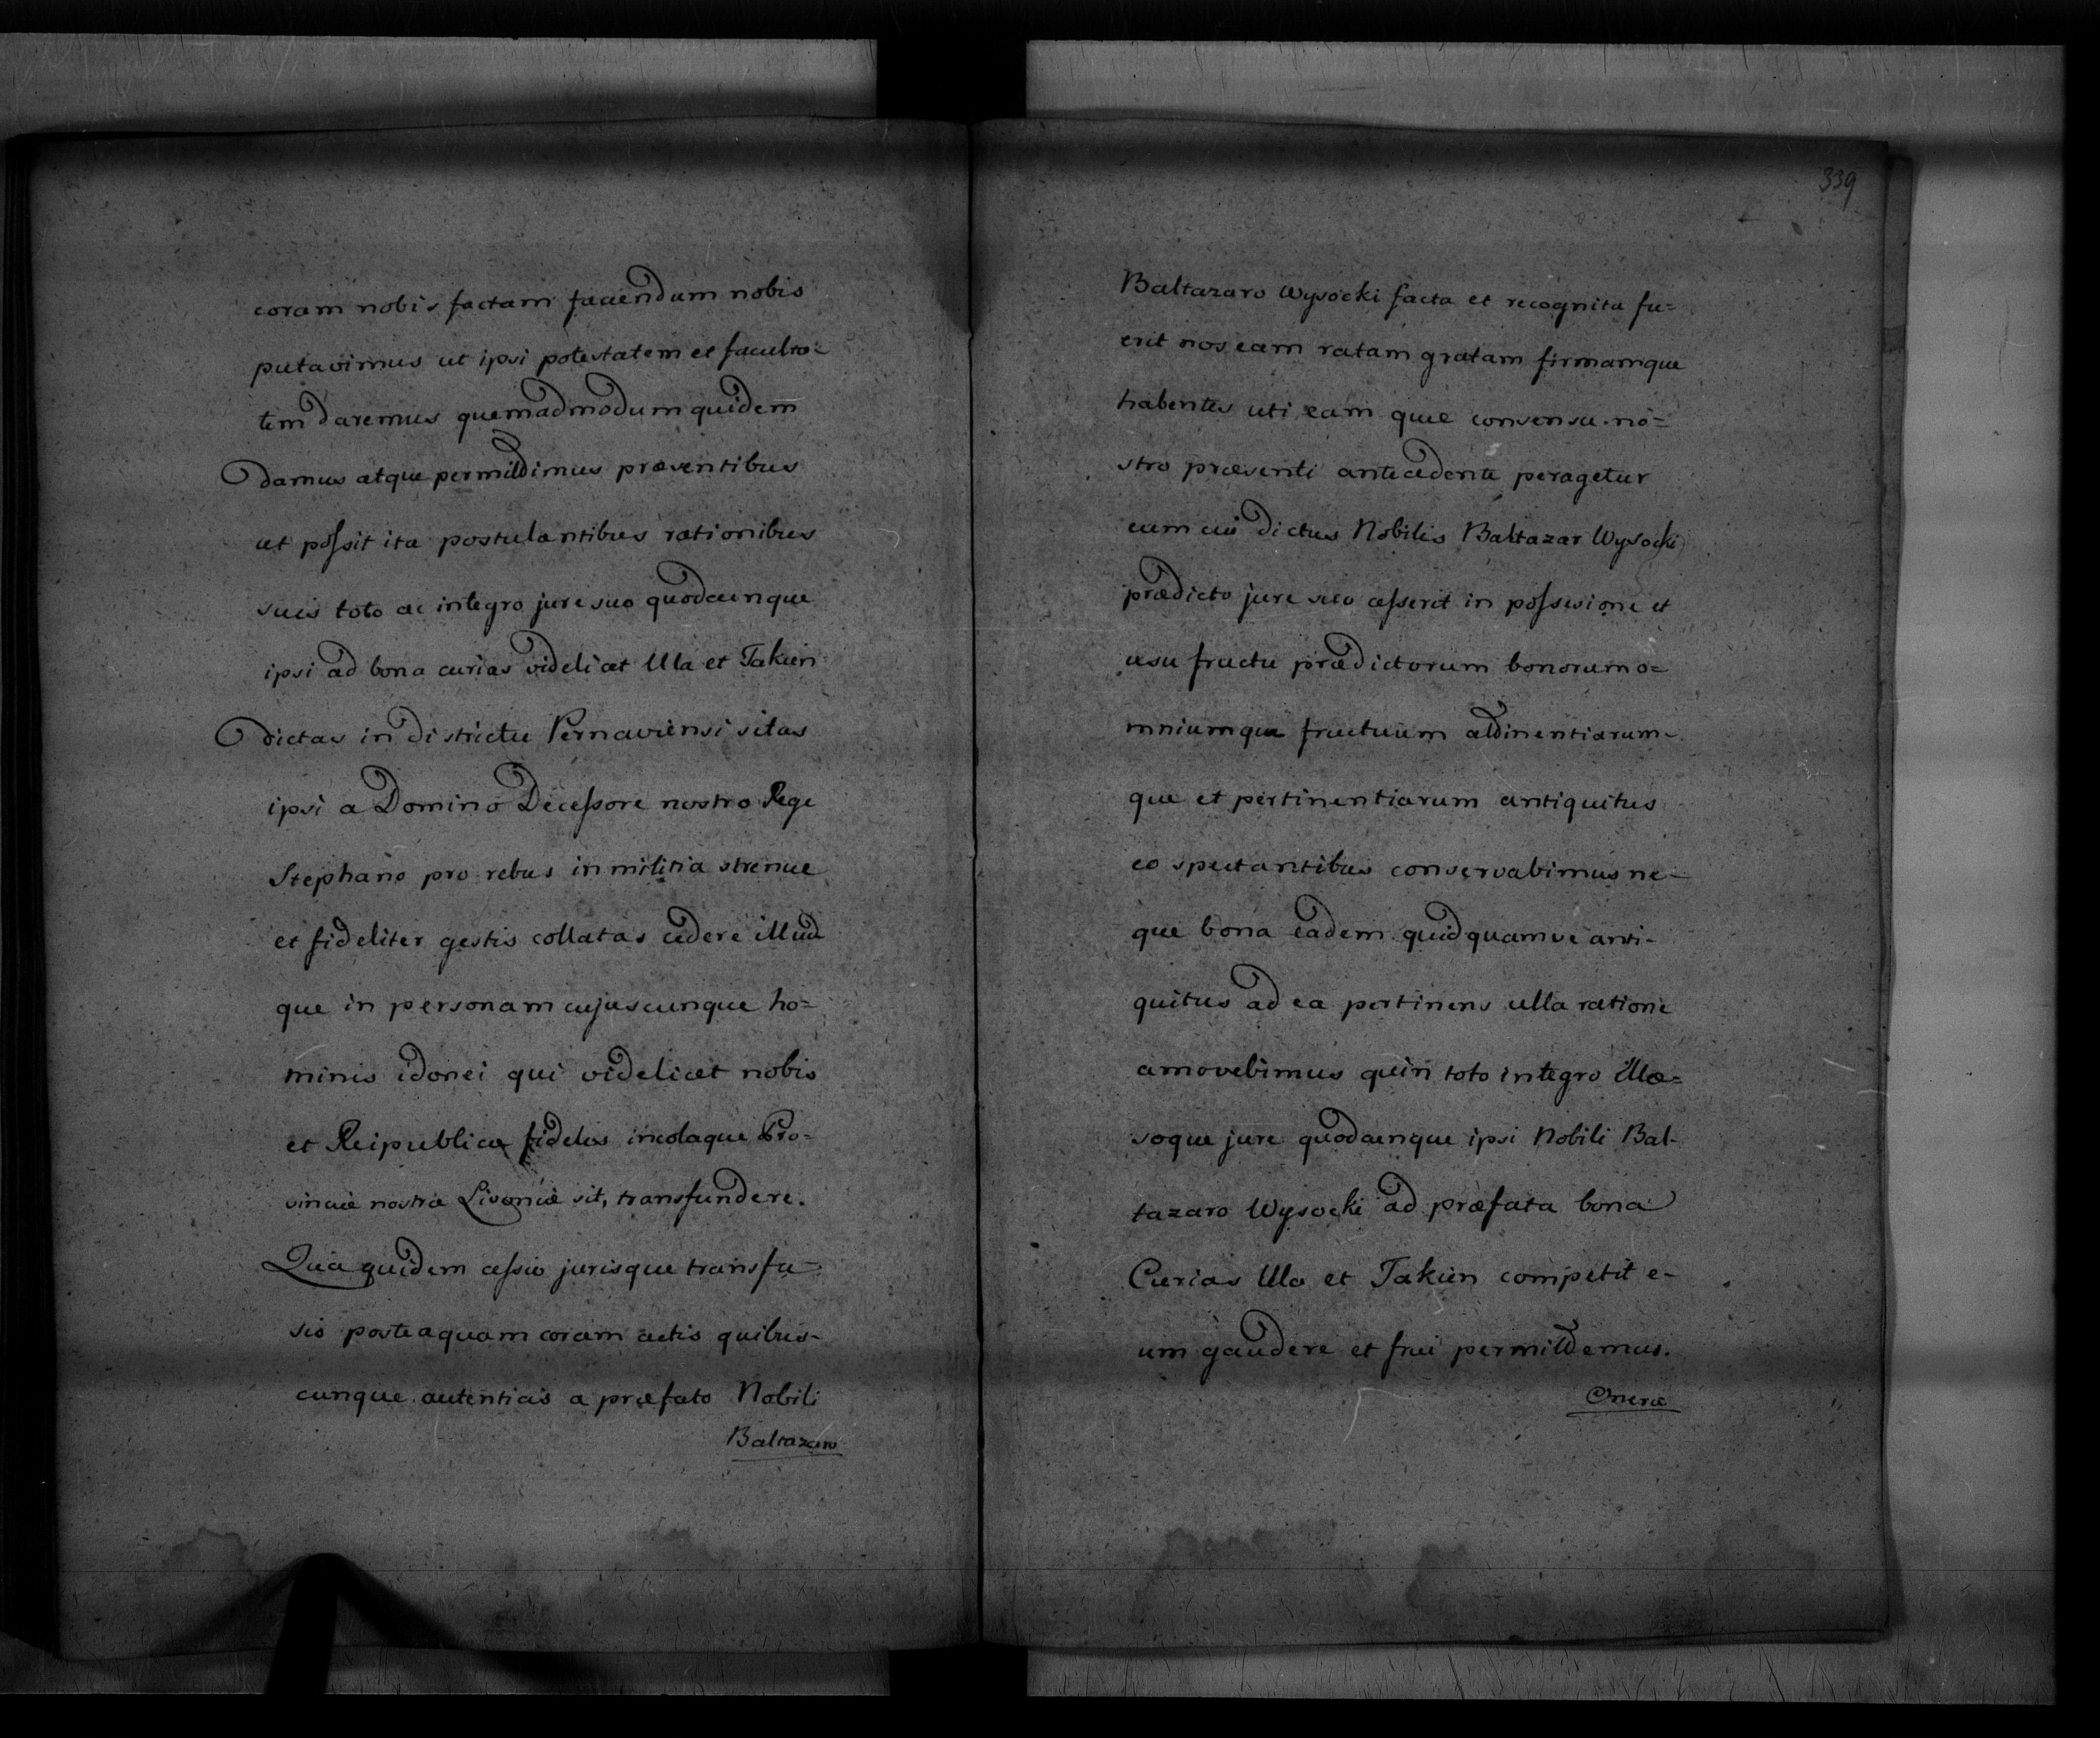 coram nobis factam faciendum nobis
putavimus ut ipsi potestatem et faculta=
tem daremus quemadmodum quidem
damus atque permittimus præsentibus
ut possit ita postulantibus rationibus
suis toto ac integro jure suo quodcunque
ipsi ad bona curias videlicet Ula et Takun
dictas in districtu Pernaviensi sitas
ipsi a Domino Decessore nostro Rege
Stephano pro rebus in militia strenue
et fideliter gestis collatas cedere illud
que in personam cujuscunque ho=
minis idonei qui videlicet nobis
et Reipublicæ fidelis incolaque Pro=
vinciæ nostræ Livoniæ sit, transfundere.
Qua quidem cessio jurisque transfu=
sio posteaquam coram actis quibus-
cunque autenticis a præfato Nobili
Baltazaro
339
Baltazaro Wysocki facta et recognita fu=
erit nos eam ratam gratam firmamque
habentes uti eam quæ consensu no=
stro præsenti antecedente peragetur
eum cui dictus Nobilis Baltazar Wysocki
prædicto jure suo cesserit in possesione et
usu fructu prædictorum bonorum o=
mniumque fructuum attinentiarum-
que et pertinentiarum antiquitus
eo spectantibus conservabimus ne-
que bona eadem quidquamve anti-
quitus ad ea pertinens ulla ratione
amovebimus quin toto integro illæ=
soque jure quodcunque ipsi Nobili Bal-
tazaro Wysocki ad præfata bona
Curias Ula et Takun competit e-
um gaudere et frui permittemus.
Onera